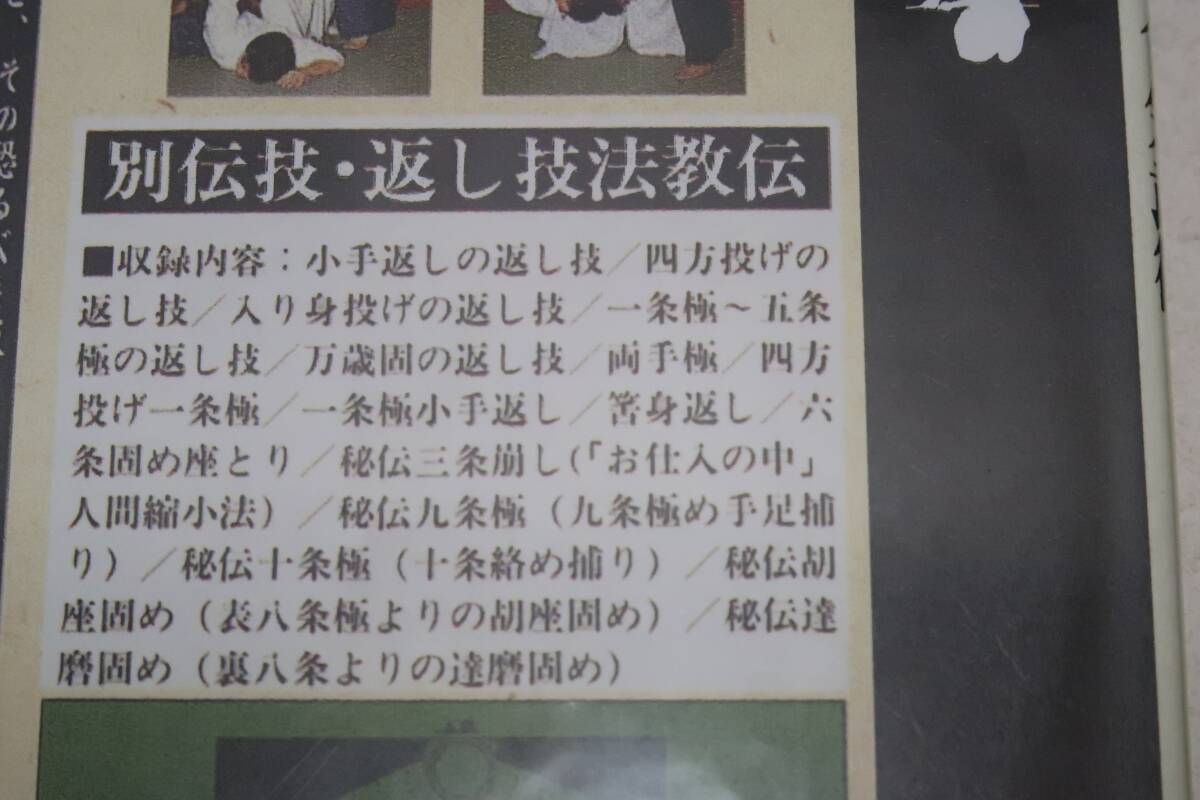 別伝技・返し技法教伝
■収録内容：小手返しの返し技／四方投げの
返し技／入り身投げの返し技／一条極～五条
極の返し技／万歳固の返し技／両手極／四方
投げ一条極／一条極小手返し／筈身返し／六
条固め座とり／秘伝三条崩し（「お仕入の中」
人間縮小法）／秘伝九条極（九条極め手足捕
り）／秘伝十条極（十条絡め捕り）／秘伝胡
座固め（表八条極よりの胡座固め）／秘伝達
磨固め（裏八条よりの達磨固め）
その恐るべ